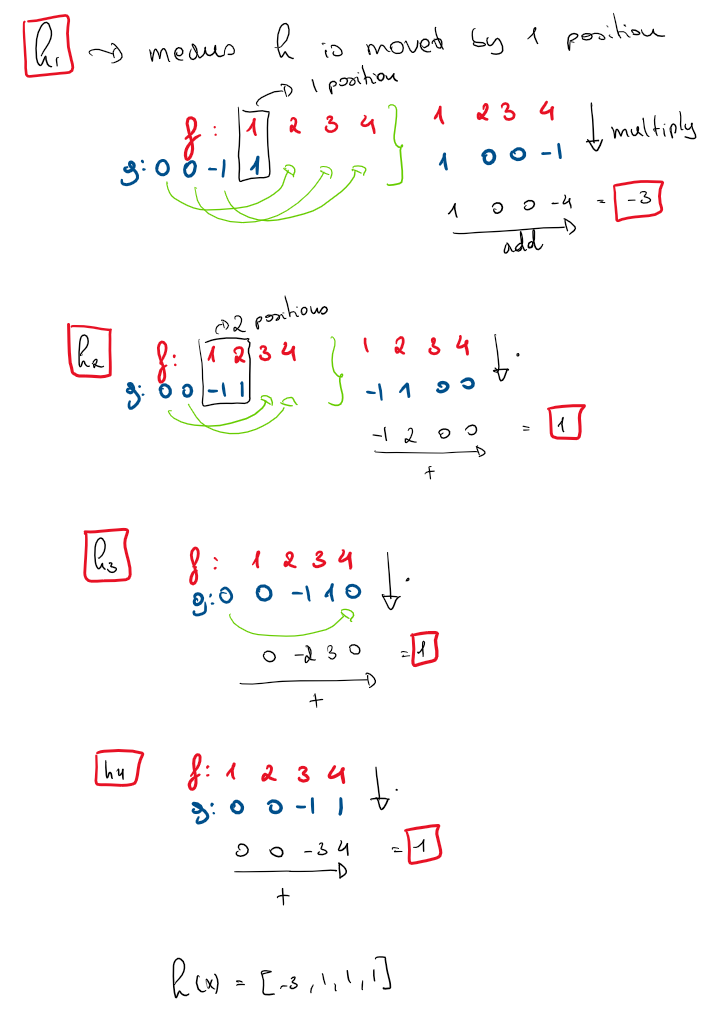 h₁ → means h is moved by 1 position
→ 1 position
f : 1 2 3 4 } 1 2 3 4 ↓ multiply
g: 0 0 -1 1 1 0 0 -1
1 0 0 -4 = -3
add
→ 2 positions
h₂ f: 1 2 3 4 } 1 2 3 4 ↓ .
g: 0 0 -1 1 -1 1 0 0
-1 2 0 0 = 1
+
h₃ f : 1 2 3 4 ↓ .
g: 0 0 -1 1 0
0 -2 3 0 = 1
+
h4 f: 1 2 3 4 ↓ .
g: 0 0 -1 1
0 0 -3 4 = 1
+
h(x) = [-3, 1, 1, 1]